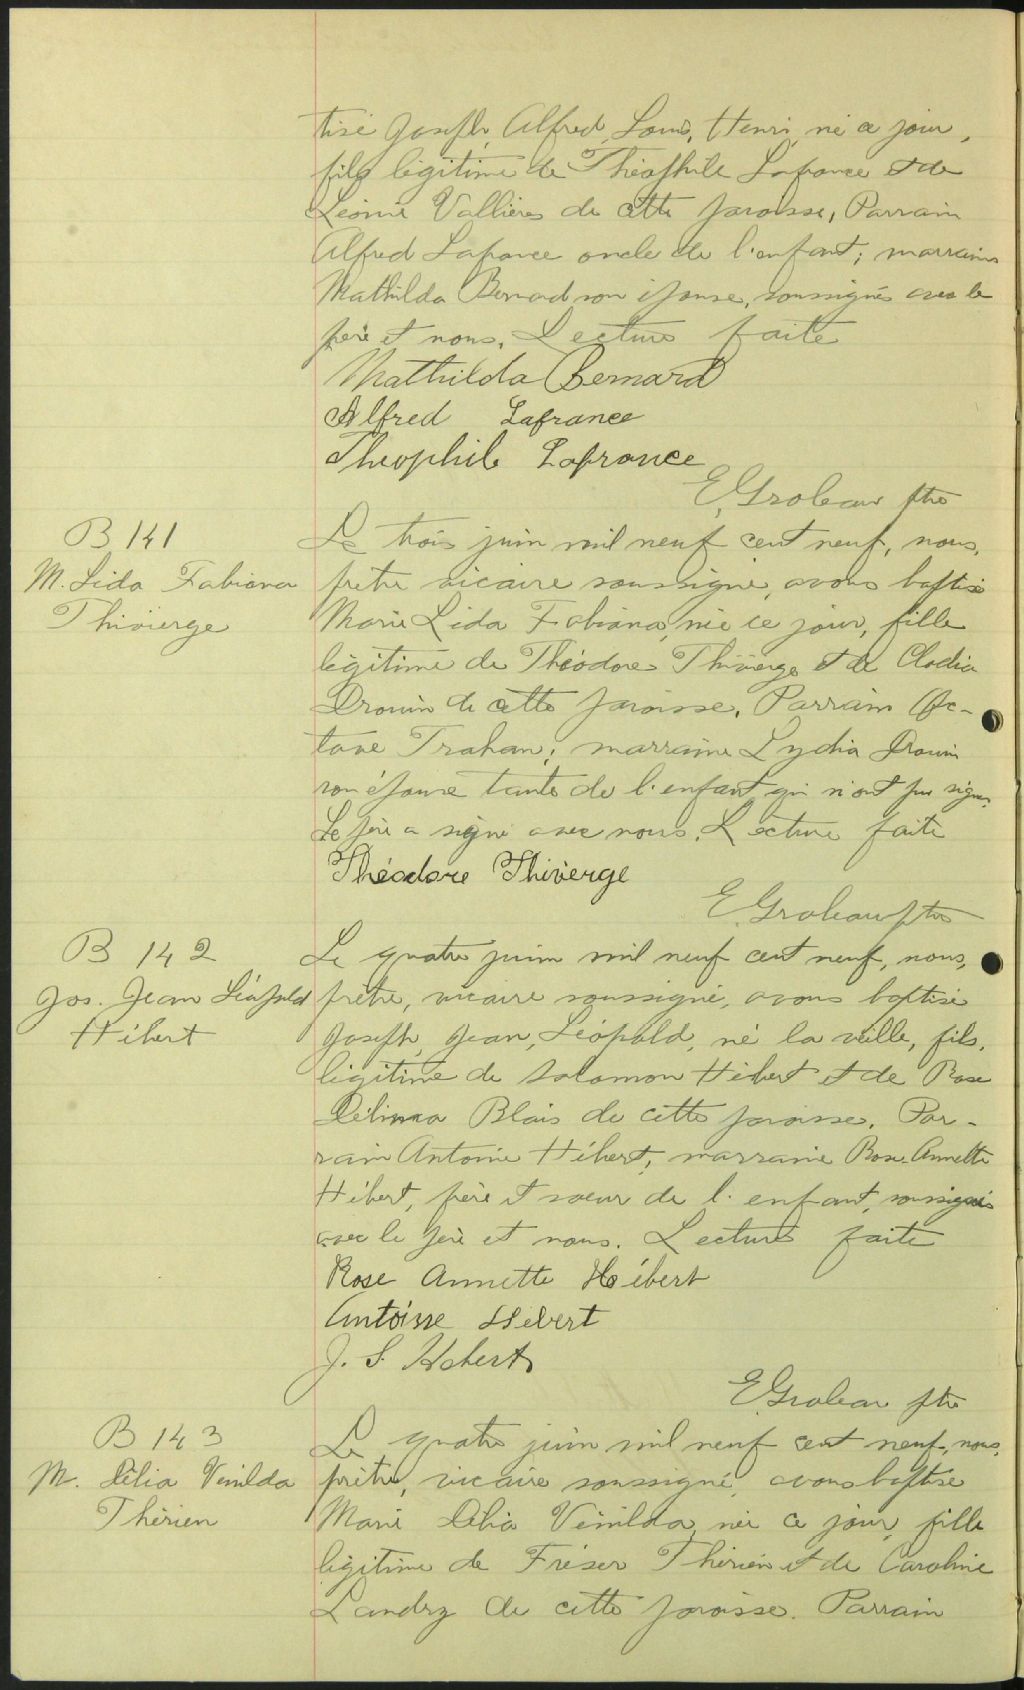 tisé Joseph, Alfred, Louis, Henri, né ce jour,
fils légitime de Théophile Lafrance et de
Léonie Vallières de cette paroisse, Parrain
Alfred Lafrance oncle de l'enfant; marraine
Mathilda Bernard son épouse, soussignés avec le
père et nous. Lecture faite
Mathilda Bernard
Alfred Lafrance
Theophile Lafrance
E. Groleau ptre
B 141
M. Lida Fabiana
Thivierge
Le trois juin mil neuf cent neuf, nous,
prêtre vicaire soussigné, avons baptisé
Marie Lida Fabiana, née ce jour, fille
légitime de Théodore Thivierge et de Clodia
Drouin de cette paroisse. Parrain Oc-
tave Trahan; marraine Lydia Drouin
son épouse tante de l'enfant qui n'ont pu signer.
Le père a signé avec nous. Lecture faite
Théodore Thivierge
E. Groleau ptre
B 142
Jos. Jean Léopold
Hébert
Le quatre juin mil neuf cent neuf, nous,
prêtre, vicaire soussigné, avons baptisé
Joseph, Jean, Léopold, né la veille, fils,
légitime de Salamon Hébert et de Rose
Délima Blais de cette paroisse. Par-
rain Antoine Hébert, marraine Rose-Annette
Hébert, frère et soeur de l'enfant, soussignés
avec le père et nous. Lecture faite
Rose Annette Hébert
Antoine Hébert
J. S. Hebert
E. Groleau ptre
B 143
M. Délia Venilda
Thérien
Le quatre juin mil neuf cent neuf, nous,
prêtre, vicaire soussigné, avons baptisé
Marie Délia Vénilda, née ce jour, fille
légitime de Fréser Thérien et de Caroline
Landry de cette paroisse. Parrain